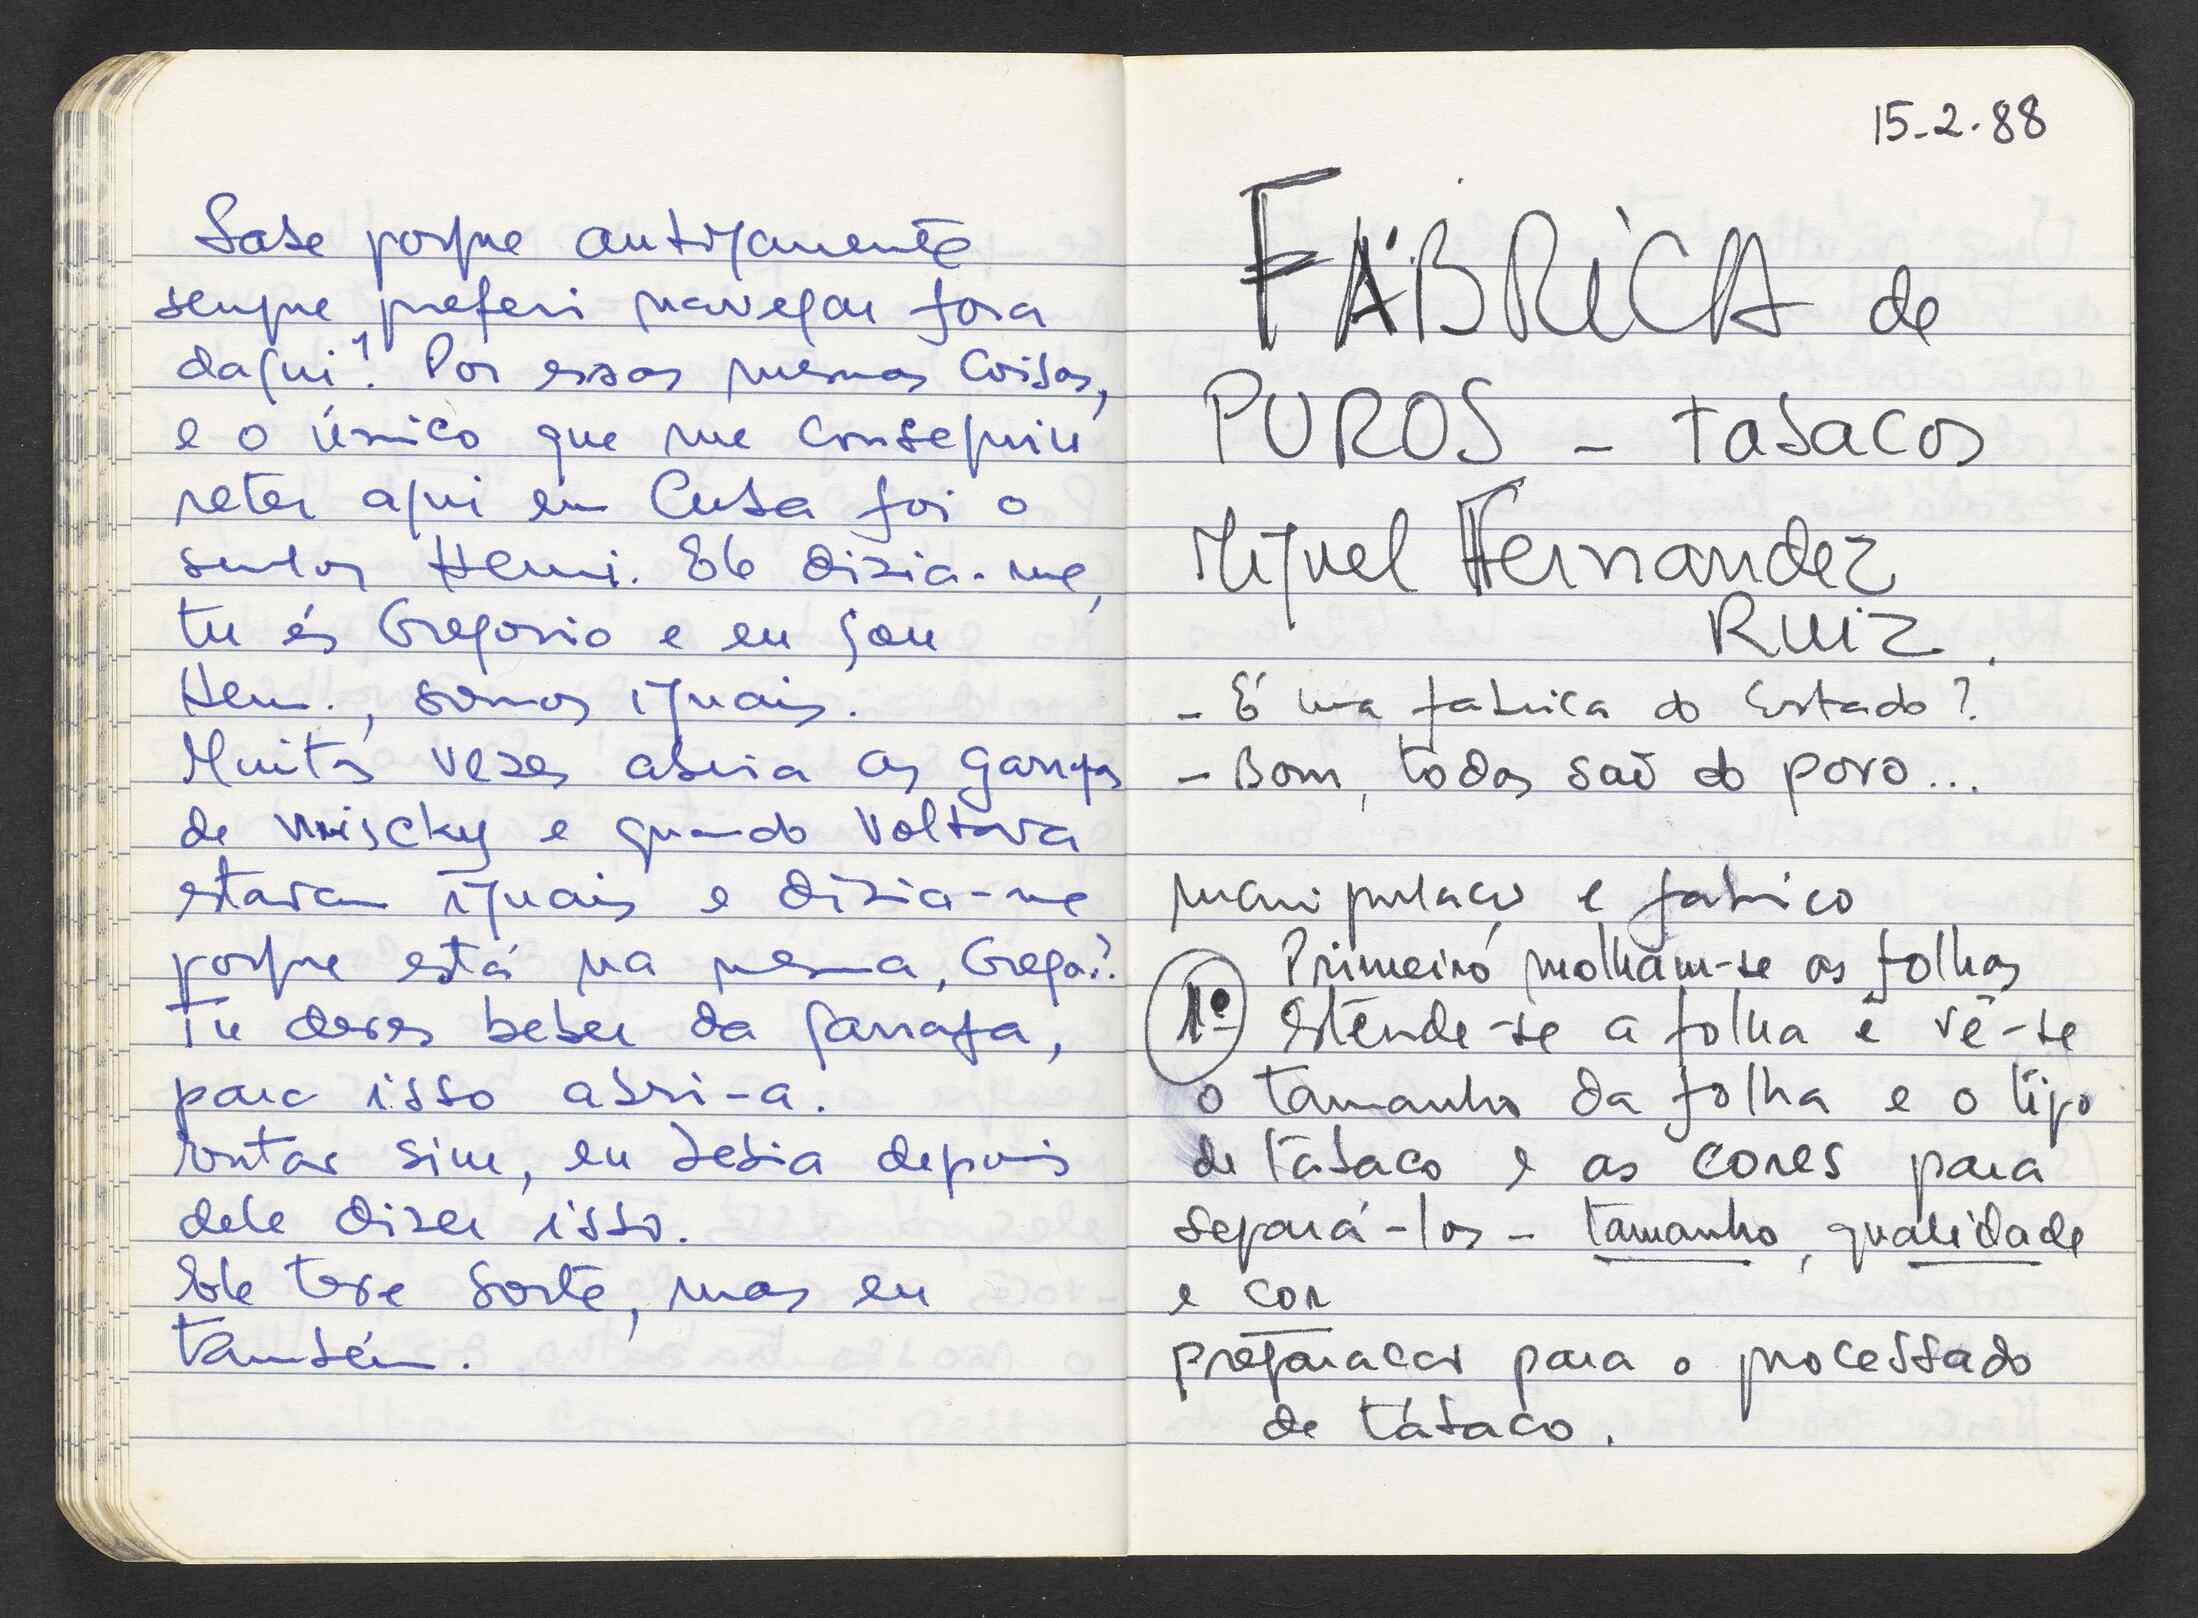 Sabe porque antigamente
sempre preferi navegar fora
daqui? Por essas mesmas coisas,
e o único que me conseguiu
reter aqui em Cuba foi o
senhor Hemi. Ele dizia-me,
tu és Gregorio e eu sou
Hem., somos iguais.
Muitas vezes abria as garrafas
de wiscky e quando voltava
estavam iguais e dizia-me
porque está na mesma, Grego.?
Tu deves beber da garrafa,
para isso abri-a.
sim, eu bebia depois
dele dizer isso.
Ele teve sorte, mas eu
também.
15-2-88
FÁBRICA de
PUROS - tabacos
Miguel Hernandez
Ruiz.
- É uma fabrica do Estado?
- Bom, todas são do povo...
manipulação e fabrico
Primeiro molham-se as folhas
1º Estende-se a folha e vê-se
o tamanho da folha e o tipo
de tabaco e as cores para
separá-los - tamanho, qualidade
e cor
preparação para o processado
de tabaco.